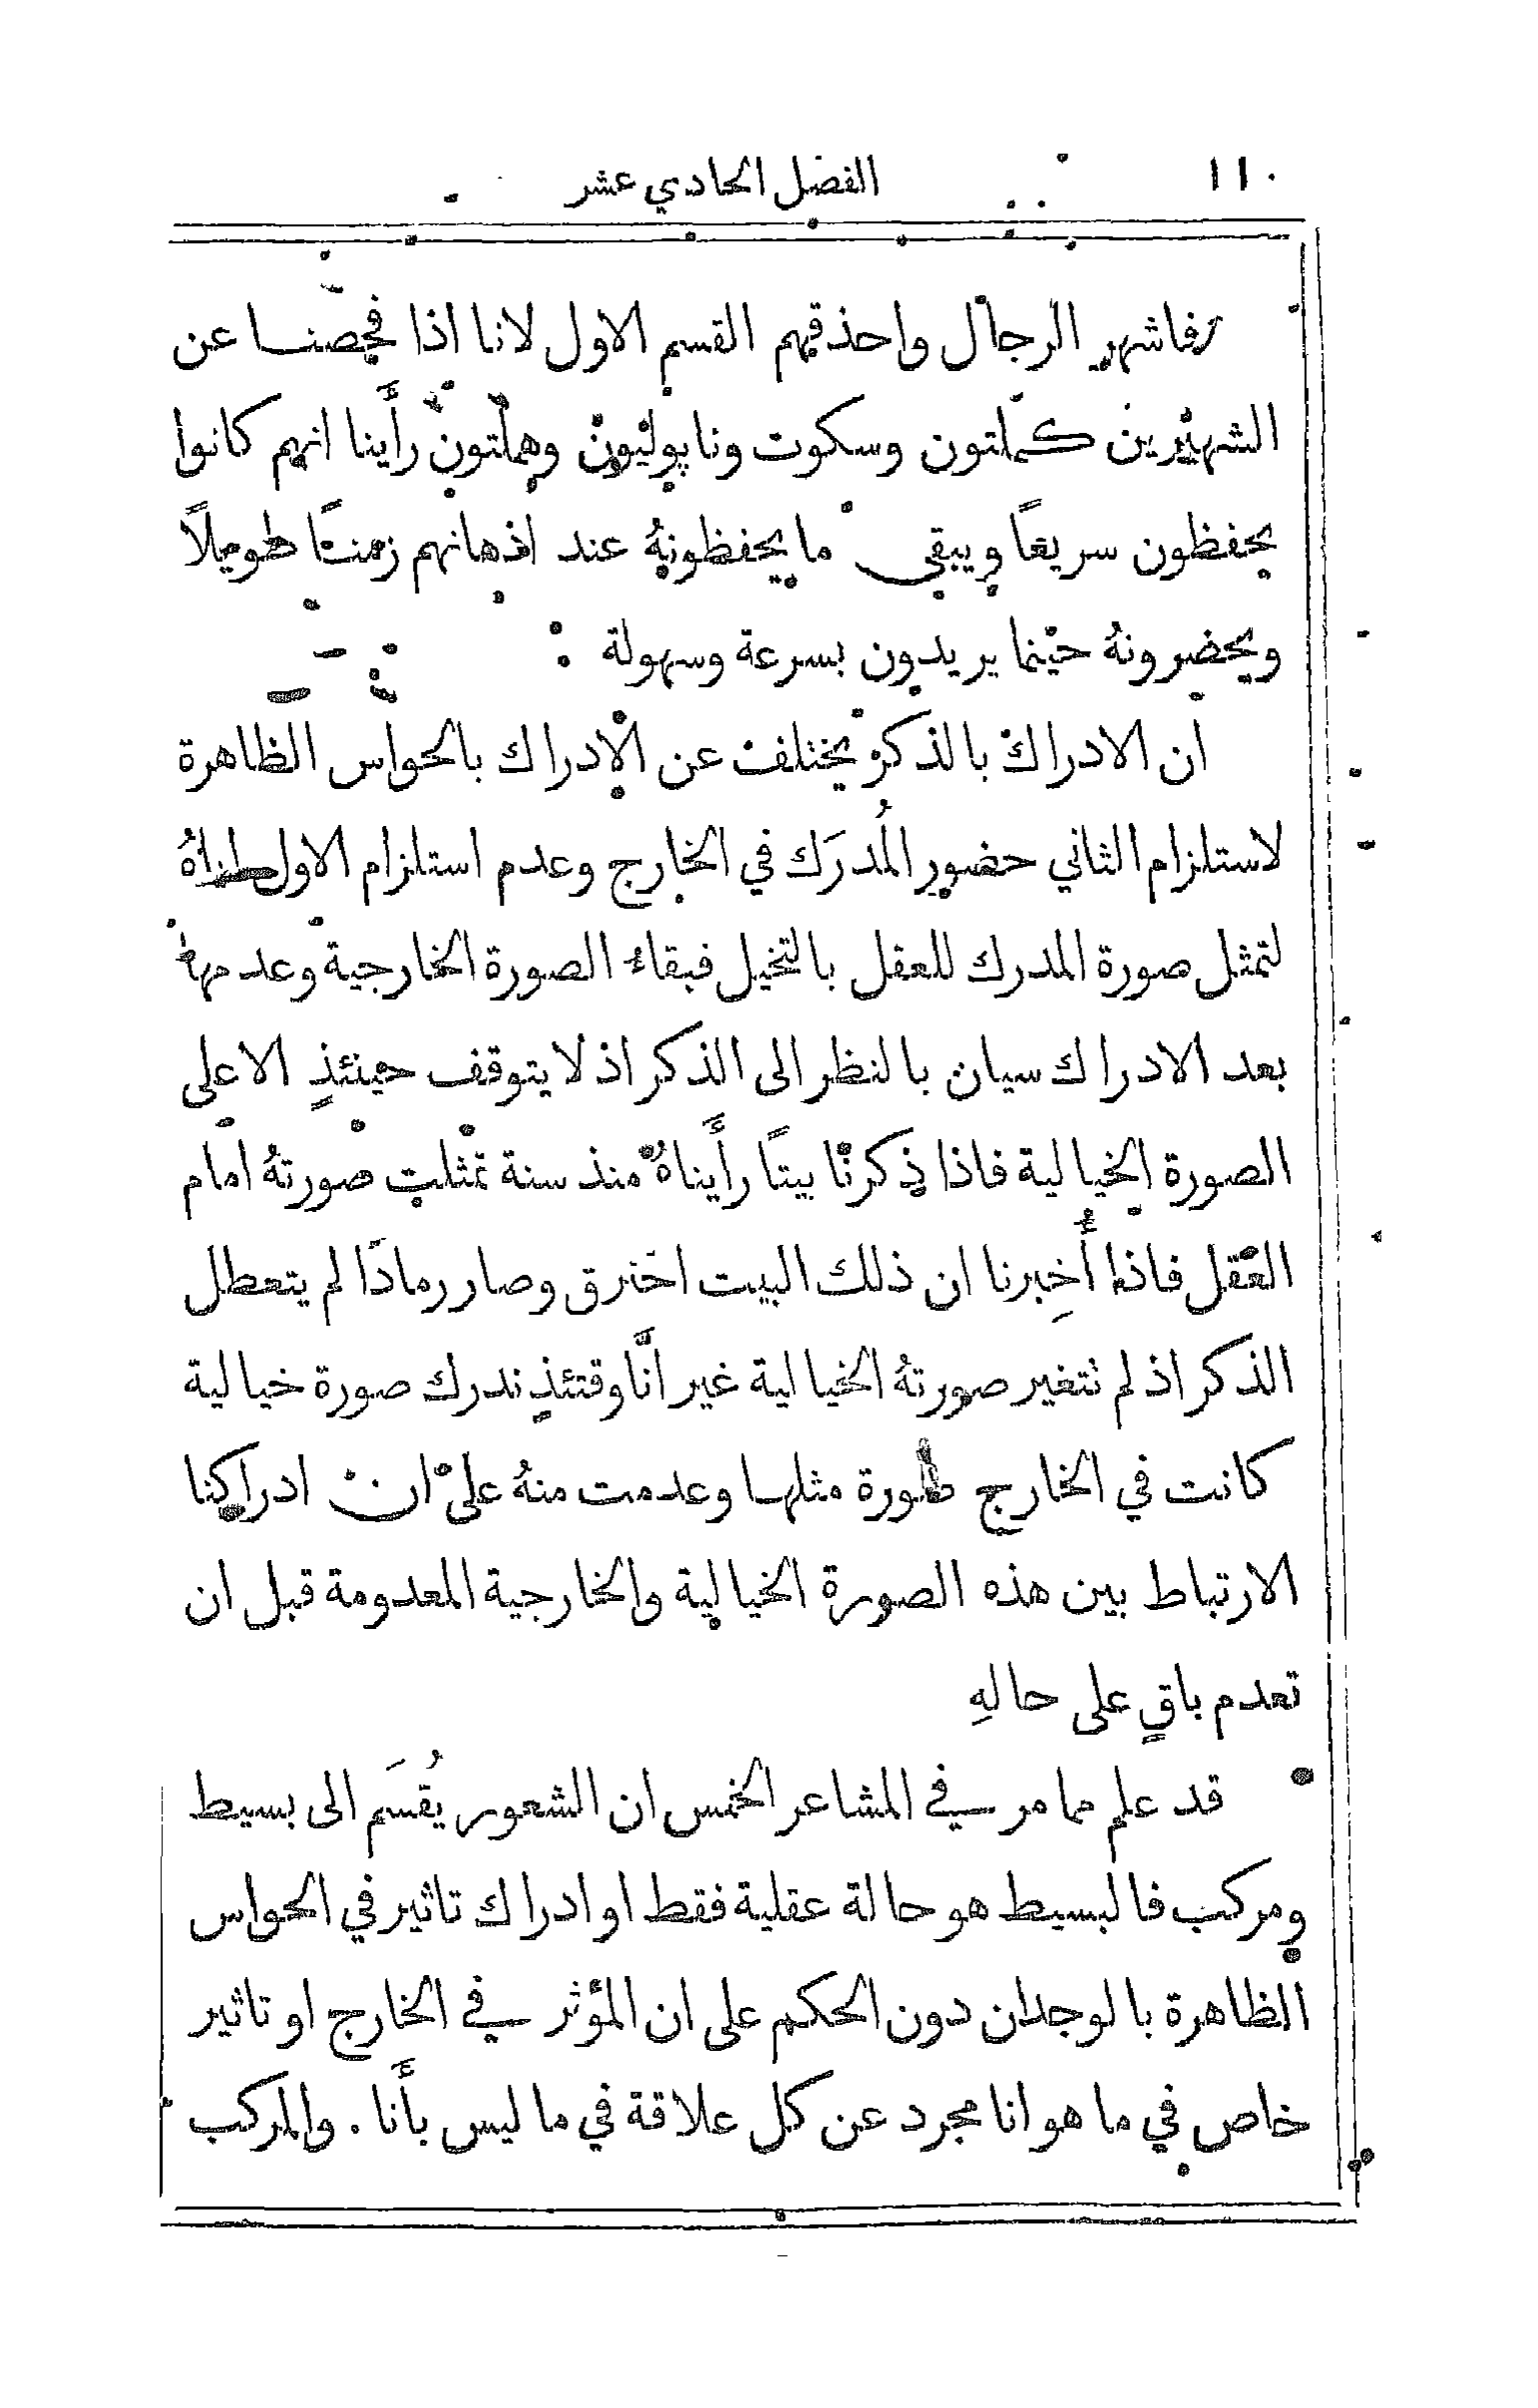 ١١٠ الفصل الحادي عشر
فاشهر الرجال واحذقهم القسم الاول لانا اذا فحصنا عن
الشهيرين كملتون وسكوت ونابوليون وهملتون رأَينا انهم كانوا
يحفظون سريعًا ويبقى ما يحفظونهُ عند اذهانهم زمنًا طويلًا
ويحضرونهُ حينما يريدون بسرعة وسهولة
ان الادراك بالذكر يختلف عن الادراك بالحواس الظاهرة
لاستلزام الثاني حضور المُدرَك في الخارج وعدم استلزام الاول اياهُ
لتمثل صورة المدرك للعقل بالتخيل فبقاء الصورة الخارجية وعدمها
بعد الادراك سيان بالنظر الى الذكر اذ لا يتوقف حينئذٍ الا على
الصورة الخيالية فاذا ذكرنا بيتًا رأَيناهُ منذ سنة تمثلت صورتهُ امام
العقل فاذا أُخبِرنا ان ذلك البيت احترق وصار رمادًا لم يتعطل
الذكر اذ لم نتغير صورتهُ الخيالية غير انَّا وقتئذٍ ندرك صورة خيالية
كانت في الخارج صورة مثلها وعدمت منهُ على ان ادراكنا
الارتباط بين هذه الصورة الخيالية والخارجية المعدومة قبل ان
تعدم باقٍ على حالهِ
قد علم مما مر في المشاعر الخمس ان الشعور يُقسَم الى بسيط
ومركب فالبسيط هو حالة عقلية فقط او ادراك تاثير في الحواس
الظاهرة بالوجدان دون الحكم على ان المؤثر في الخارج او تاثير
خاص في ما هو انا مجرد عن كل علاقة في ما ليس بأَنا . والمركب